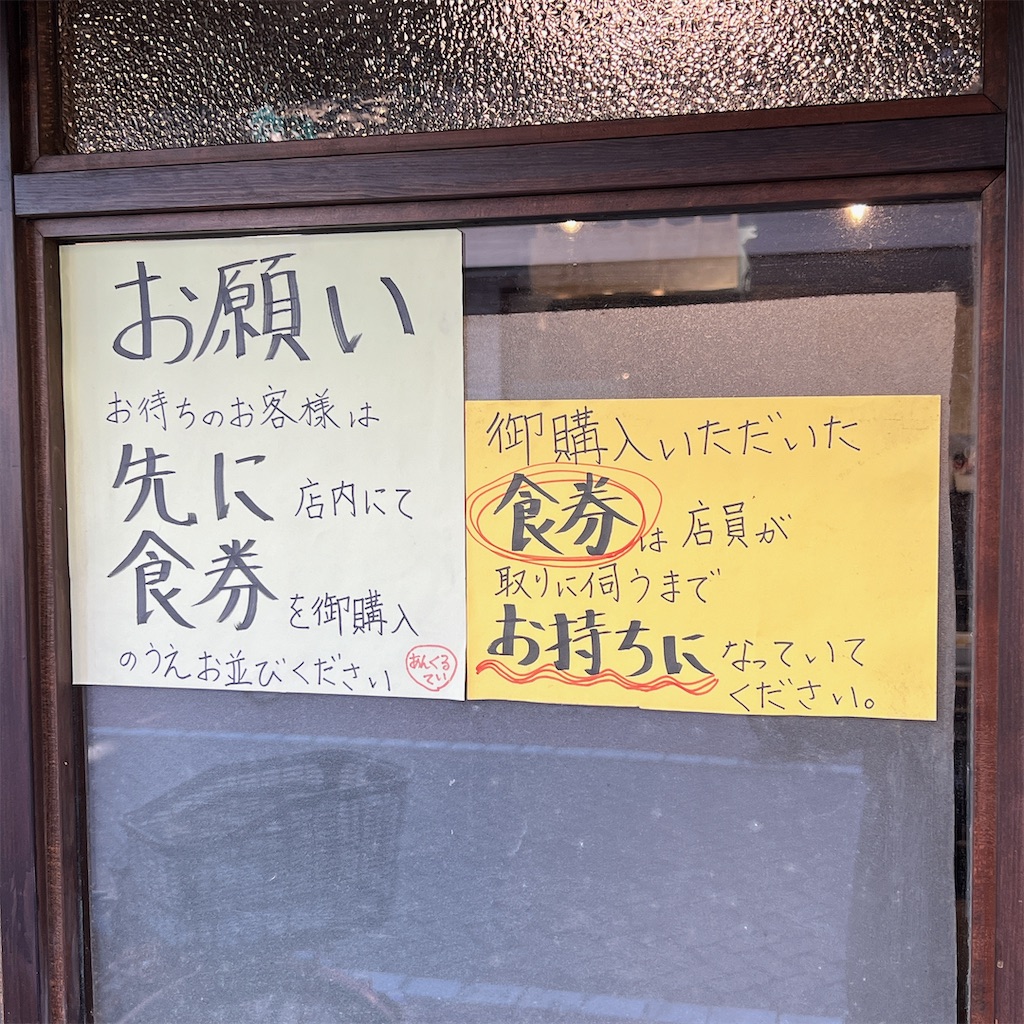 お願い
お待ちのお客様は
先に 店内にて
食券を御購入
のうえお並びください
あんくる
てい
御購入いただいた
食券は店員が
取りに伺うまで
お持ちになっていて
ください。